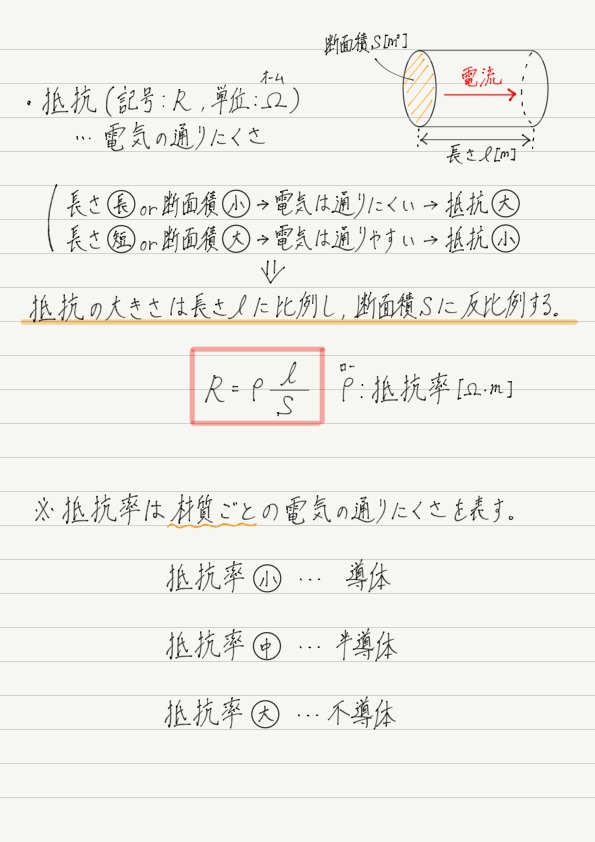 断面積S[m²]
電流
長さl[m]
オーム
・抵抗(記号:R,単位:Ω)
… 電気の通りにくさ
長さ長or断面積小→電気は通りにくい→抵抗大
長さ短or断面積大→電気は通りやすい→抵抗小
⇓
抵抗の大きさは長さlに比例し,断面積Sに反比例する。
ロー
R=ρ l/S ρ:抵抗率[Ω・m]
※抵抗率は材質ごとの電気の通りにくさを表す。
抵抗率小 … 導体
抵抗率中 … 半導体
抵抗率大 … 不導体